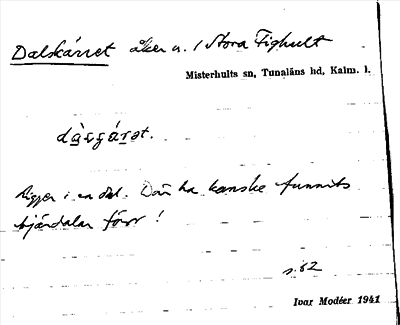 Dalskärret åker u. / Stora Fighult
Misterhults sn, Tunaläns hd, Kalm. l.
Ligger i en dal. Där ha kanske funnits
tjärdalar förr!
s. 62
Ivar Modéer 1941